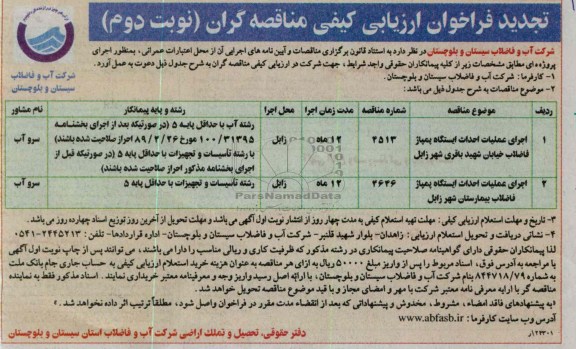 تجدید فراخوان ارزیابی کیفی مناقصه گران (نوبت دوم)
شرکت آب و فاضلاب سیستان و بلوچستان
شرکت آب و فاضلاب سیستان و بلوچستان در نظر دارد به استناد قانون برگزاری مناقصات و آیین نامه های اجرایی آن از محل اعتبارات عمرانی، بمنظور اجرای
پروژه ای مطابق مشخصات زیر از کلیه پیمانکاران حقوقی واجد شرایط، جهت شرکت در ارزیابی کیفی مناقصه گران به شرح جدول ذیل دعوت به عمل آورد.
۱- کارفرما: شرکت آب و فاضلاب سیستان و بلوچستان.
۲- موضوع مناقصات به شرح جدول ذیل می باشد:
ردیف موضوع مناقصه شماره مناقصه مدت زمان اجرا محل اجرا رشته و پایه پیمانکار نام مشاور
۱ اجرای عملیات احداث ایستگاه پمپاژ فاضلاب خیابان شهید باقری شهر زابل ۴۵۱۳ ۱۲ ماه زابل رشته آب با حداقل پایه ۵ (در صورتیکه بعد از اجرای بخشنامه ۱۰۰/۳۱۳۹۵ مورخ ۸۹/۲/۲۶ احراز صلاحیت شده باشند) با رشته تأسیسات و تجهیزات با حداقل پایه ۵ (در صورتیکه قبل از اجرای بخشنامه مذکور احراز صلاحیت شده باشند) سرو آب
۲ اجرای عملیات احداث ایستگاه پمپاژ فاضلاب بیمارستان شهر زابل ۴۶۴۶ ۱۲ ماه زابل رشته تأسیسات و تجهیزات با حداقل پایه ۵ سرو آب
ParsNamadData
۳- تاریخ و مهلت استعلام ارزیابی کیفی: مهلت تهیه استعلام کیفی به مدت چهار روز از انتشار نوبت اول آگهی می باشد و مهلت تحویل از آخرین روز توزیع اسناد چهارده روز می باشد.
۴- نشانی دریافت و تحویل استعلام ارزیابی: زاهدان- بلوار شهید قلنبر- شرکت آب و فاضلاب سیستان و بلوچستان- اداره قراردادها- تلفن: ۲۴۴۵۲۱۳-۰۵۴۱
لذا پیمانکاران حقوقی دارای گواهینامه صلاحیت پیمانکاری در رشته مذکور که ظرفیت کاری و ریالی مناسب را دارا می باشند، می توانند پس از چاپ نوبت اول آگهی
با مراجعه به آدرس فوق، اسناد مربوط را پس از واریز مبلغ ۵۰۰۰۰۰ ریال به ازای هر مناقصه به عنوان هزینه خرید استعلام ارزیابی کیفی به حساب جاری جام بانک ملت
به شماره ۸۲۴۷۱۸/۷۹ بنام شرکت آب و فاضلاب سیستان و بلوچستان، با ارائه اصل رسید واریز وجه و معرفینامه معتبر خریداری نمایند. اسناد مذکور فقط به نماینده
مناقصه گر با ارایه معرفی نامه معتبر شرکت با مهر و امضای مجاز و با قید موضوع مناقصه تحویل خواهد شد.
«به پیشنهادهای فاقد امضاء، مشروط، مخدوش و پیشنهاداتی که بعد از انقضاء مدت مقرر در فراخوان واصل شود، مطلقاً ترتیب اثر داده نخواهد شد.»
آدرس وب سایت کارفرما: www.abfasb.ir
دفتر حقوقی، تحصیل و تملک اراضی شرکت آب و فاضلاب استان سیستان و بلوچستان